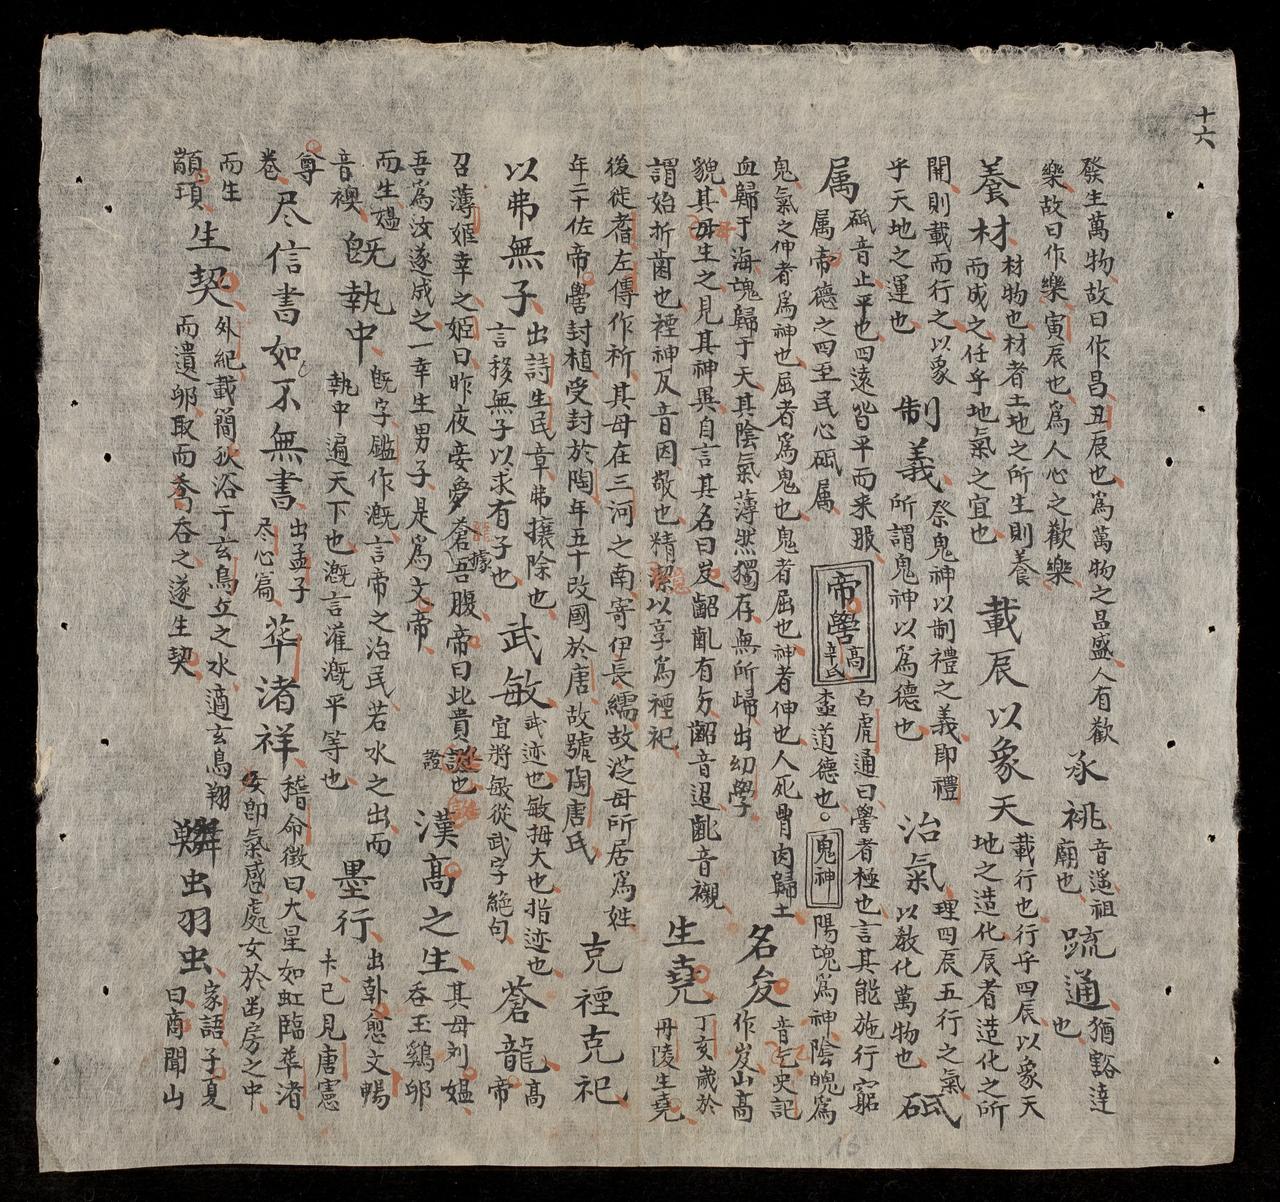 十六
發生萬物故曰作昌丑辰也爲萬物之昌盛人有歡
樂故曰作樂寅辰也爲人心之歡樂
承祧
音遥祖
廟也
疏通
猶豁達
也
養材
材物也材者土地之所生則養
而成之任乎地氣之宜也
載辰以象天
載行也行乎四辰以象天
地之造化辰者造化之所
開則載而行之以象
乎天地之運也
制義
祭鬼神以制禮之義即禮
所謂鬼神以爲德也
治氣
理四辰五行之氣
以敎化萬物也
砥
属
砥音止平也四遠皆平而来服
属帝德之四至民心砥属
帝嚳
高
辛氏
白虎通曰嚳者極也言其能施行窮
道德也。
鬼神
陽魂爲神陰魄爲
鬼氣之伸者爲神也屈者爲鬼也鬼者屈也神者伸也人死骨肉歸土
血歸于海魂歸于天其陰氣薄然獨存無所歸出幼學
名夋
音乞史記
作岌山高
貌其母生之見其神異自言其名曰岌齠齔有方齠音迢齔音襯
謂始折齒也禋神反音因敬也精潔以享爲禋祀
生堯
丁亥歲於
丹陵生堯
後徙耆左傳作祈其母在三河之南寄伊長孺故從母所居爲姓
年二十佐帝嚳封植受封於陶年五十改國於唐故號陶唐氏
克禋克祀
以弗無子
出詩生民章弗攘除也
言移無子以求有子也
武敏
武迹也敏拇大也指迹也
宜將敏從武字絶句
蒼龍
高
帝
召薄姬幸之姬曰昨夜妾夢蒼龍據吾腹帝曰此貴證也
吾爲汝遂成之一幸生男子是爲文帝
漢高之生
其母刘媪
呑玉鷄卵
而生媪
音襖
旣執中
旣字鑑作漑言帝之治民若水之出而
執中遍天下也漑言灌漑平等也
墨行
出韓愈文暢
卞已見唐憲
尊
卷
尽信書如不無書
出孟子
尽心篇
華渚祥
稽命徵曰大星如虹臨華渚
氣感處女於幽房之中
而生
顓頊
生契
外紀載簡狄浴于玄鳥丘之水適玄鳥翔
而遺卵取而呑之遂生契
鱗虫羽虫
家語子夏
曰商聞山
16